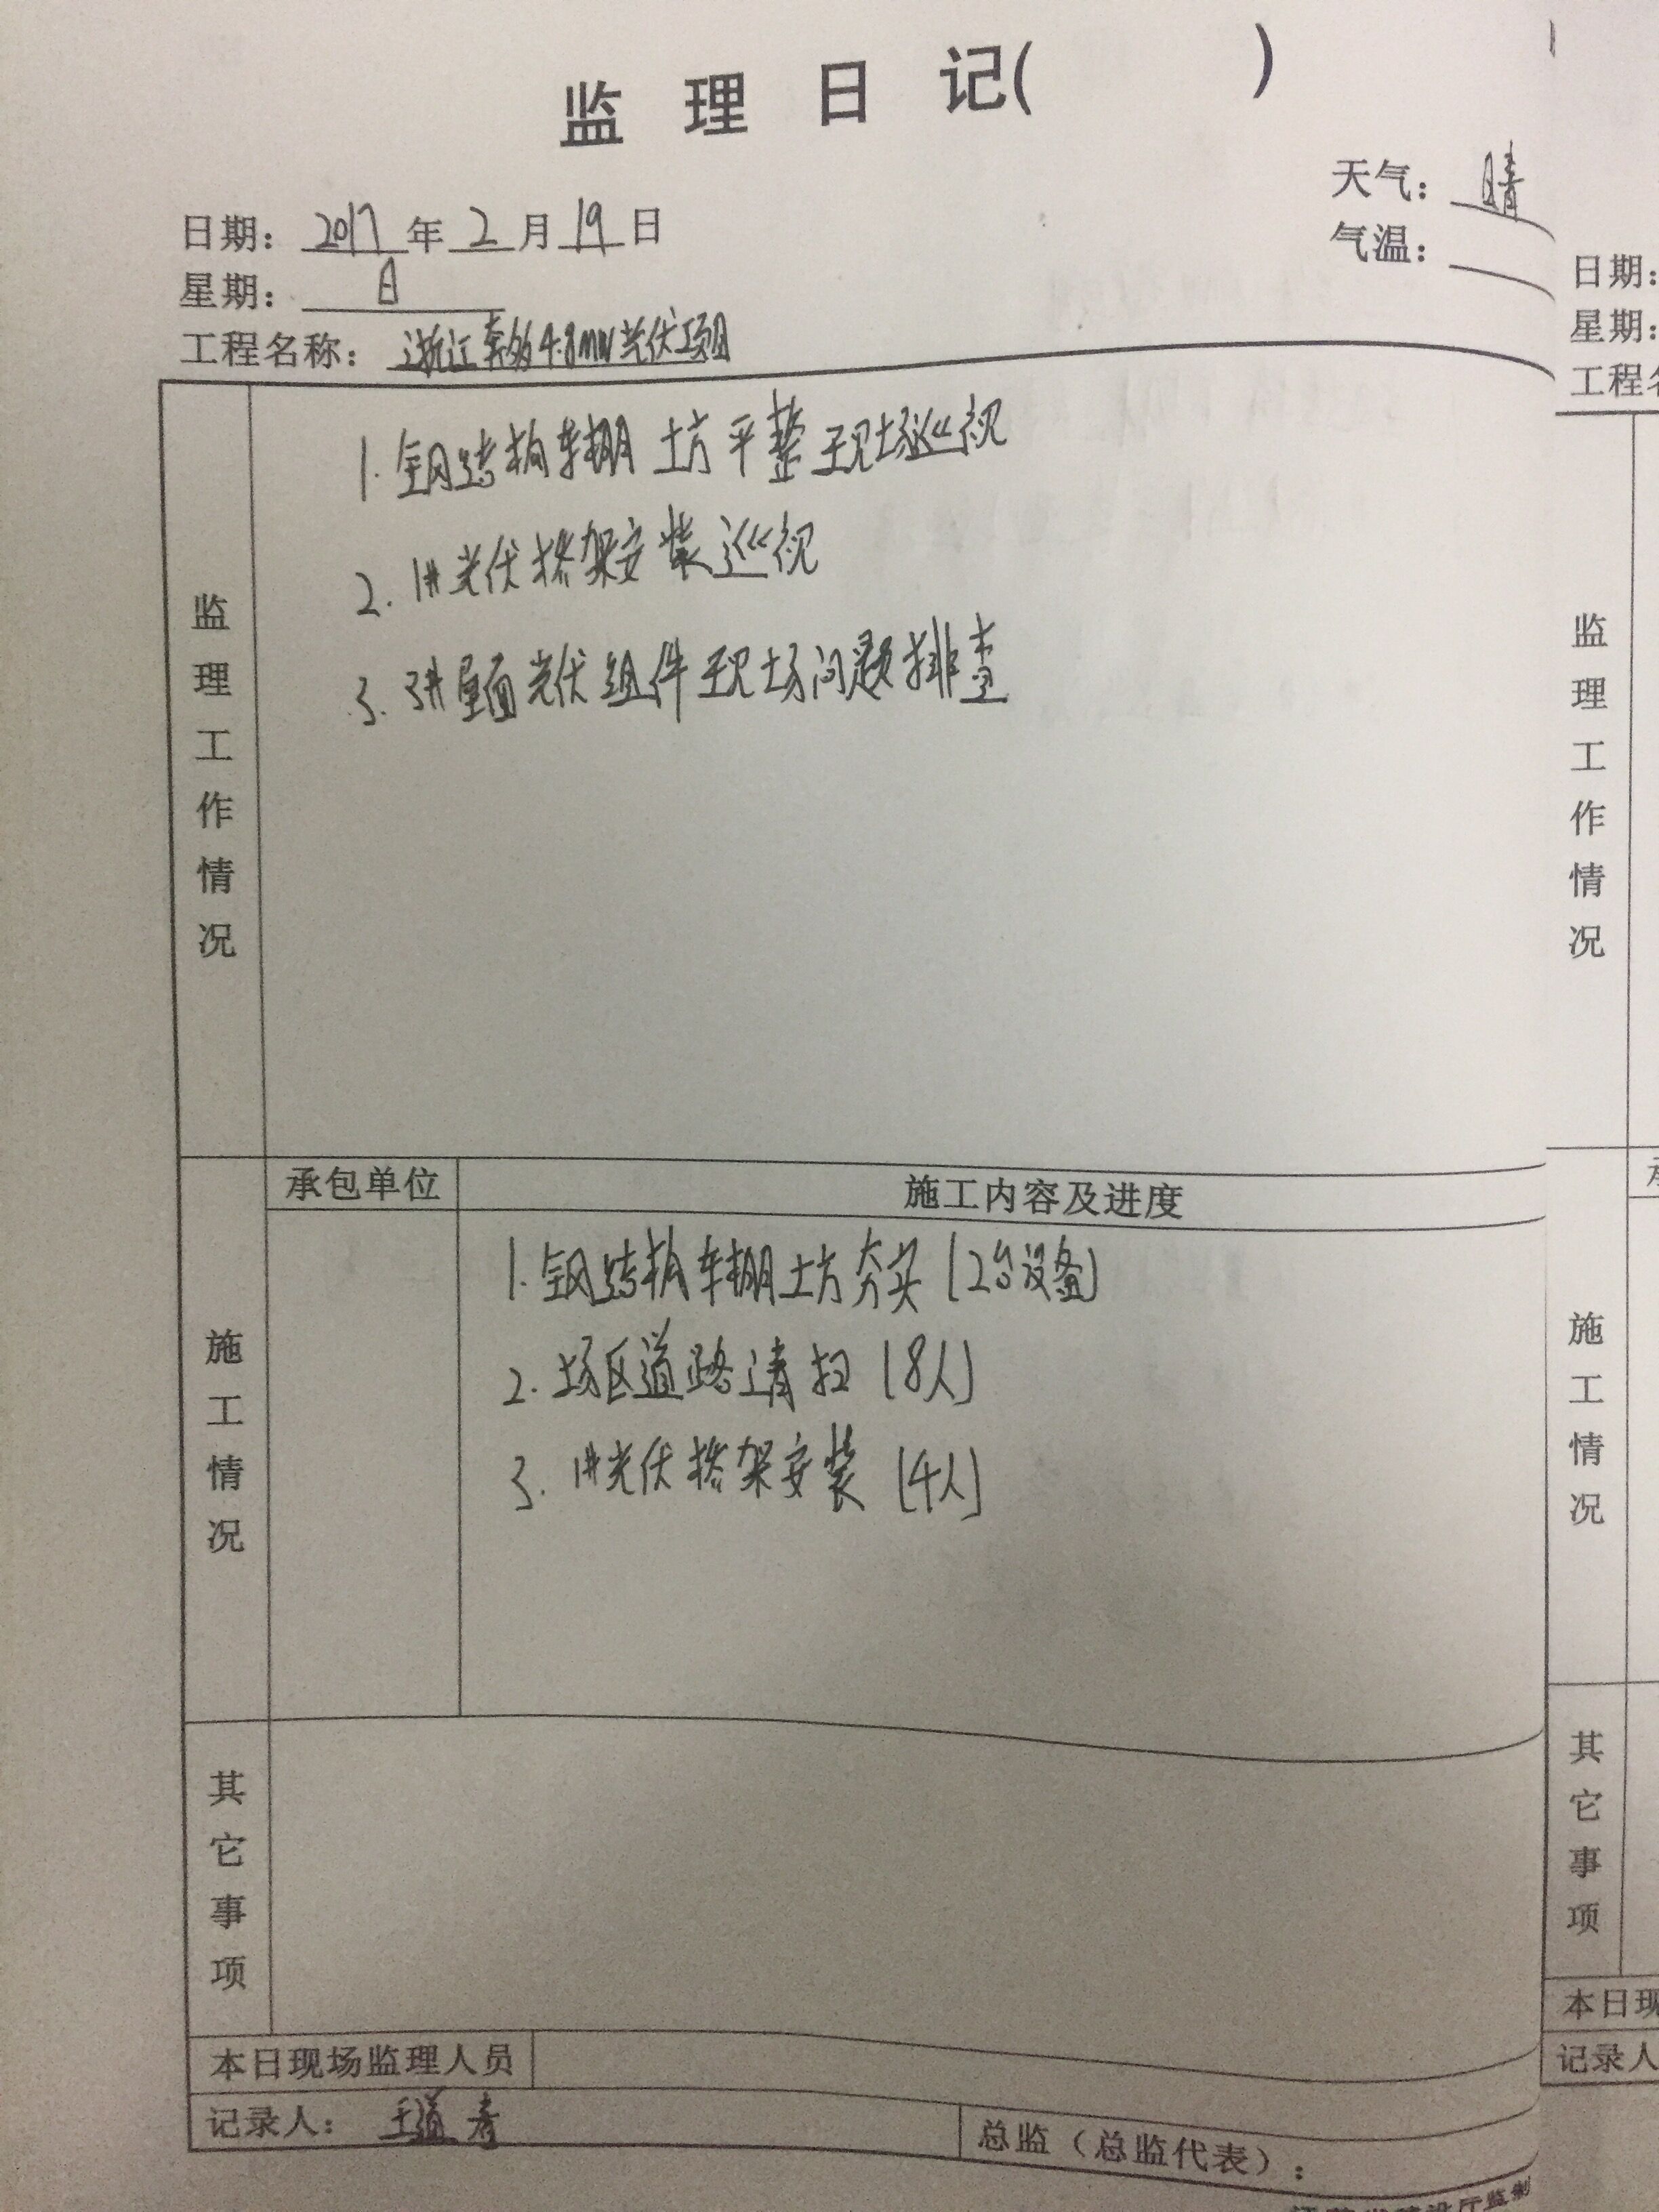 监理日记(          )
天气：晴
日期：2017年2月19日
气温：
星期：日
工程名称：浙江泰爹4.8mw光伏项目
监理工作情况
1.钢结构车棚土方平整现场巡视
2.1#光伏搭架安装巡视
3.3#屋面光伏组件现场问题排查
施工情况
承包单位
施工内容及进度
1.钢结构车棚土方夯实(2台设备)
2.场区道路清扫(8人)
3.1#光伏搭架安装(4人)
其它事项
本日现场监理人员
记录人：王道彦
总监（总监代表）：
设厅监制
日期：
星期：
工程名
监理工作情况
施工情况
其它事项
本日现
记录人